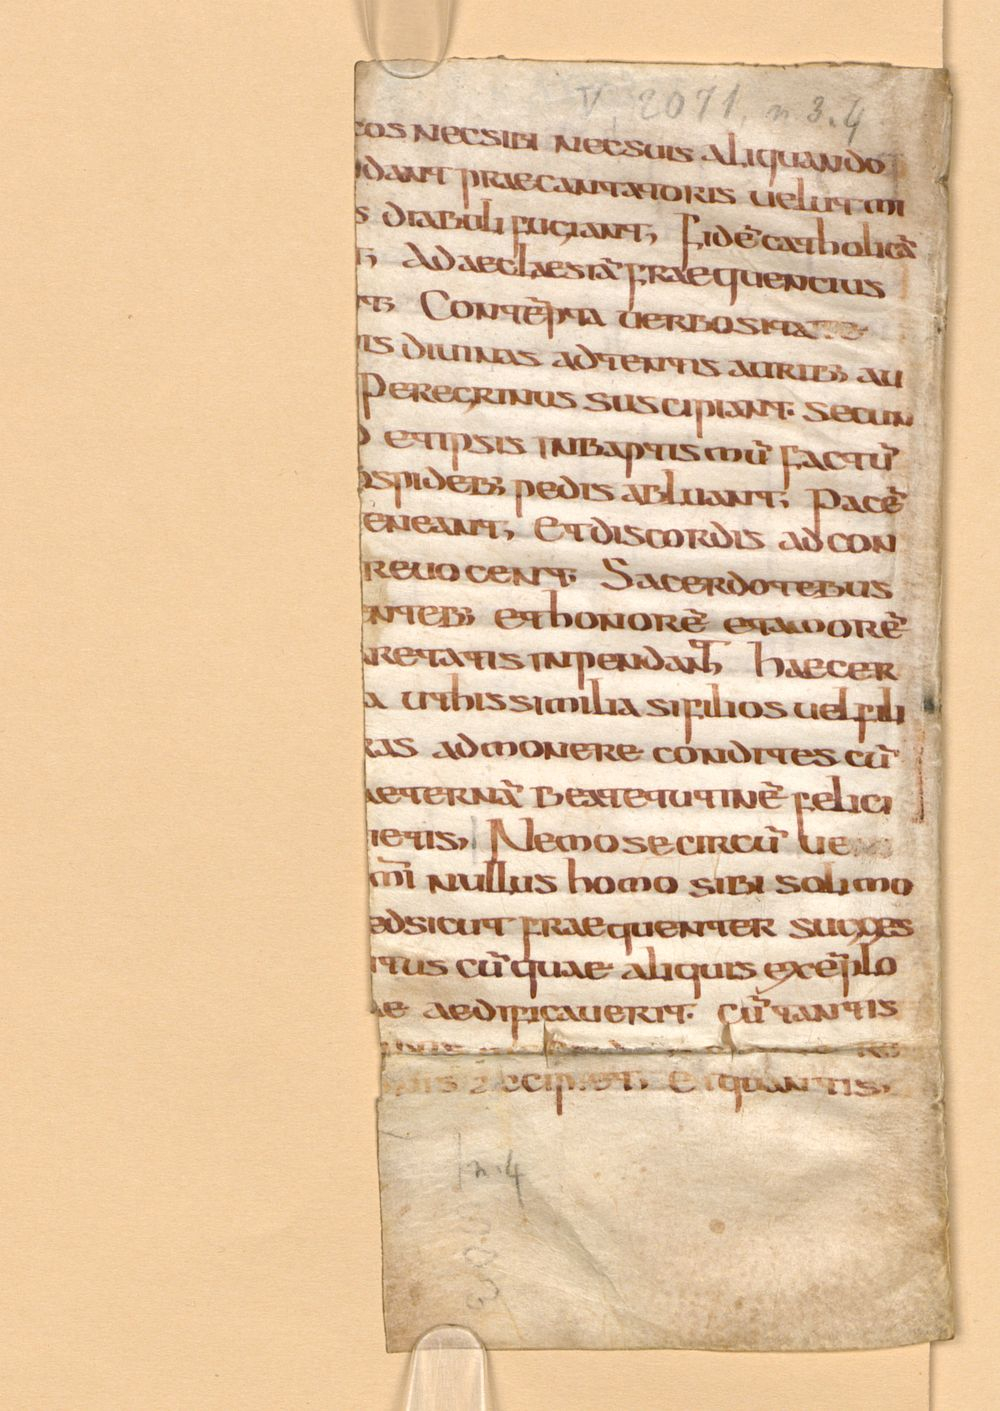 V, 2071, n 3.4
cos necsibi necsuis aliquando
dant praecantatoris uelut mi
s diabuli fugiant; fidē catholicā
t; Ad aeclaesiā fraequencius
nt; Contēpta uerbositate
nis diuinas adtentis aurib; au
Peregrinus suscipiant. secun
d etipsis inbaptismū factū
ospideb; pedis abluant; pacē
eneant; Etdiscordis ad con
reuocent; Sacerdotebus
enteb; ethonorē etamorē
aretatis inpendant; haecer
a uthissimilia sifilios uel fili
ras admonere condites cū
aeternā bextetutinē felici
ietis; Nemosecircū ue
mī nullus homo sibi soli mo
edsicut fraequenter sugges
itus cū quae aliquis exēplo
ae aedificauerit. cū tantis
accipiet; Etquantis;
n.4